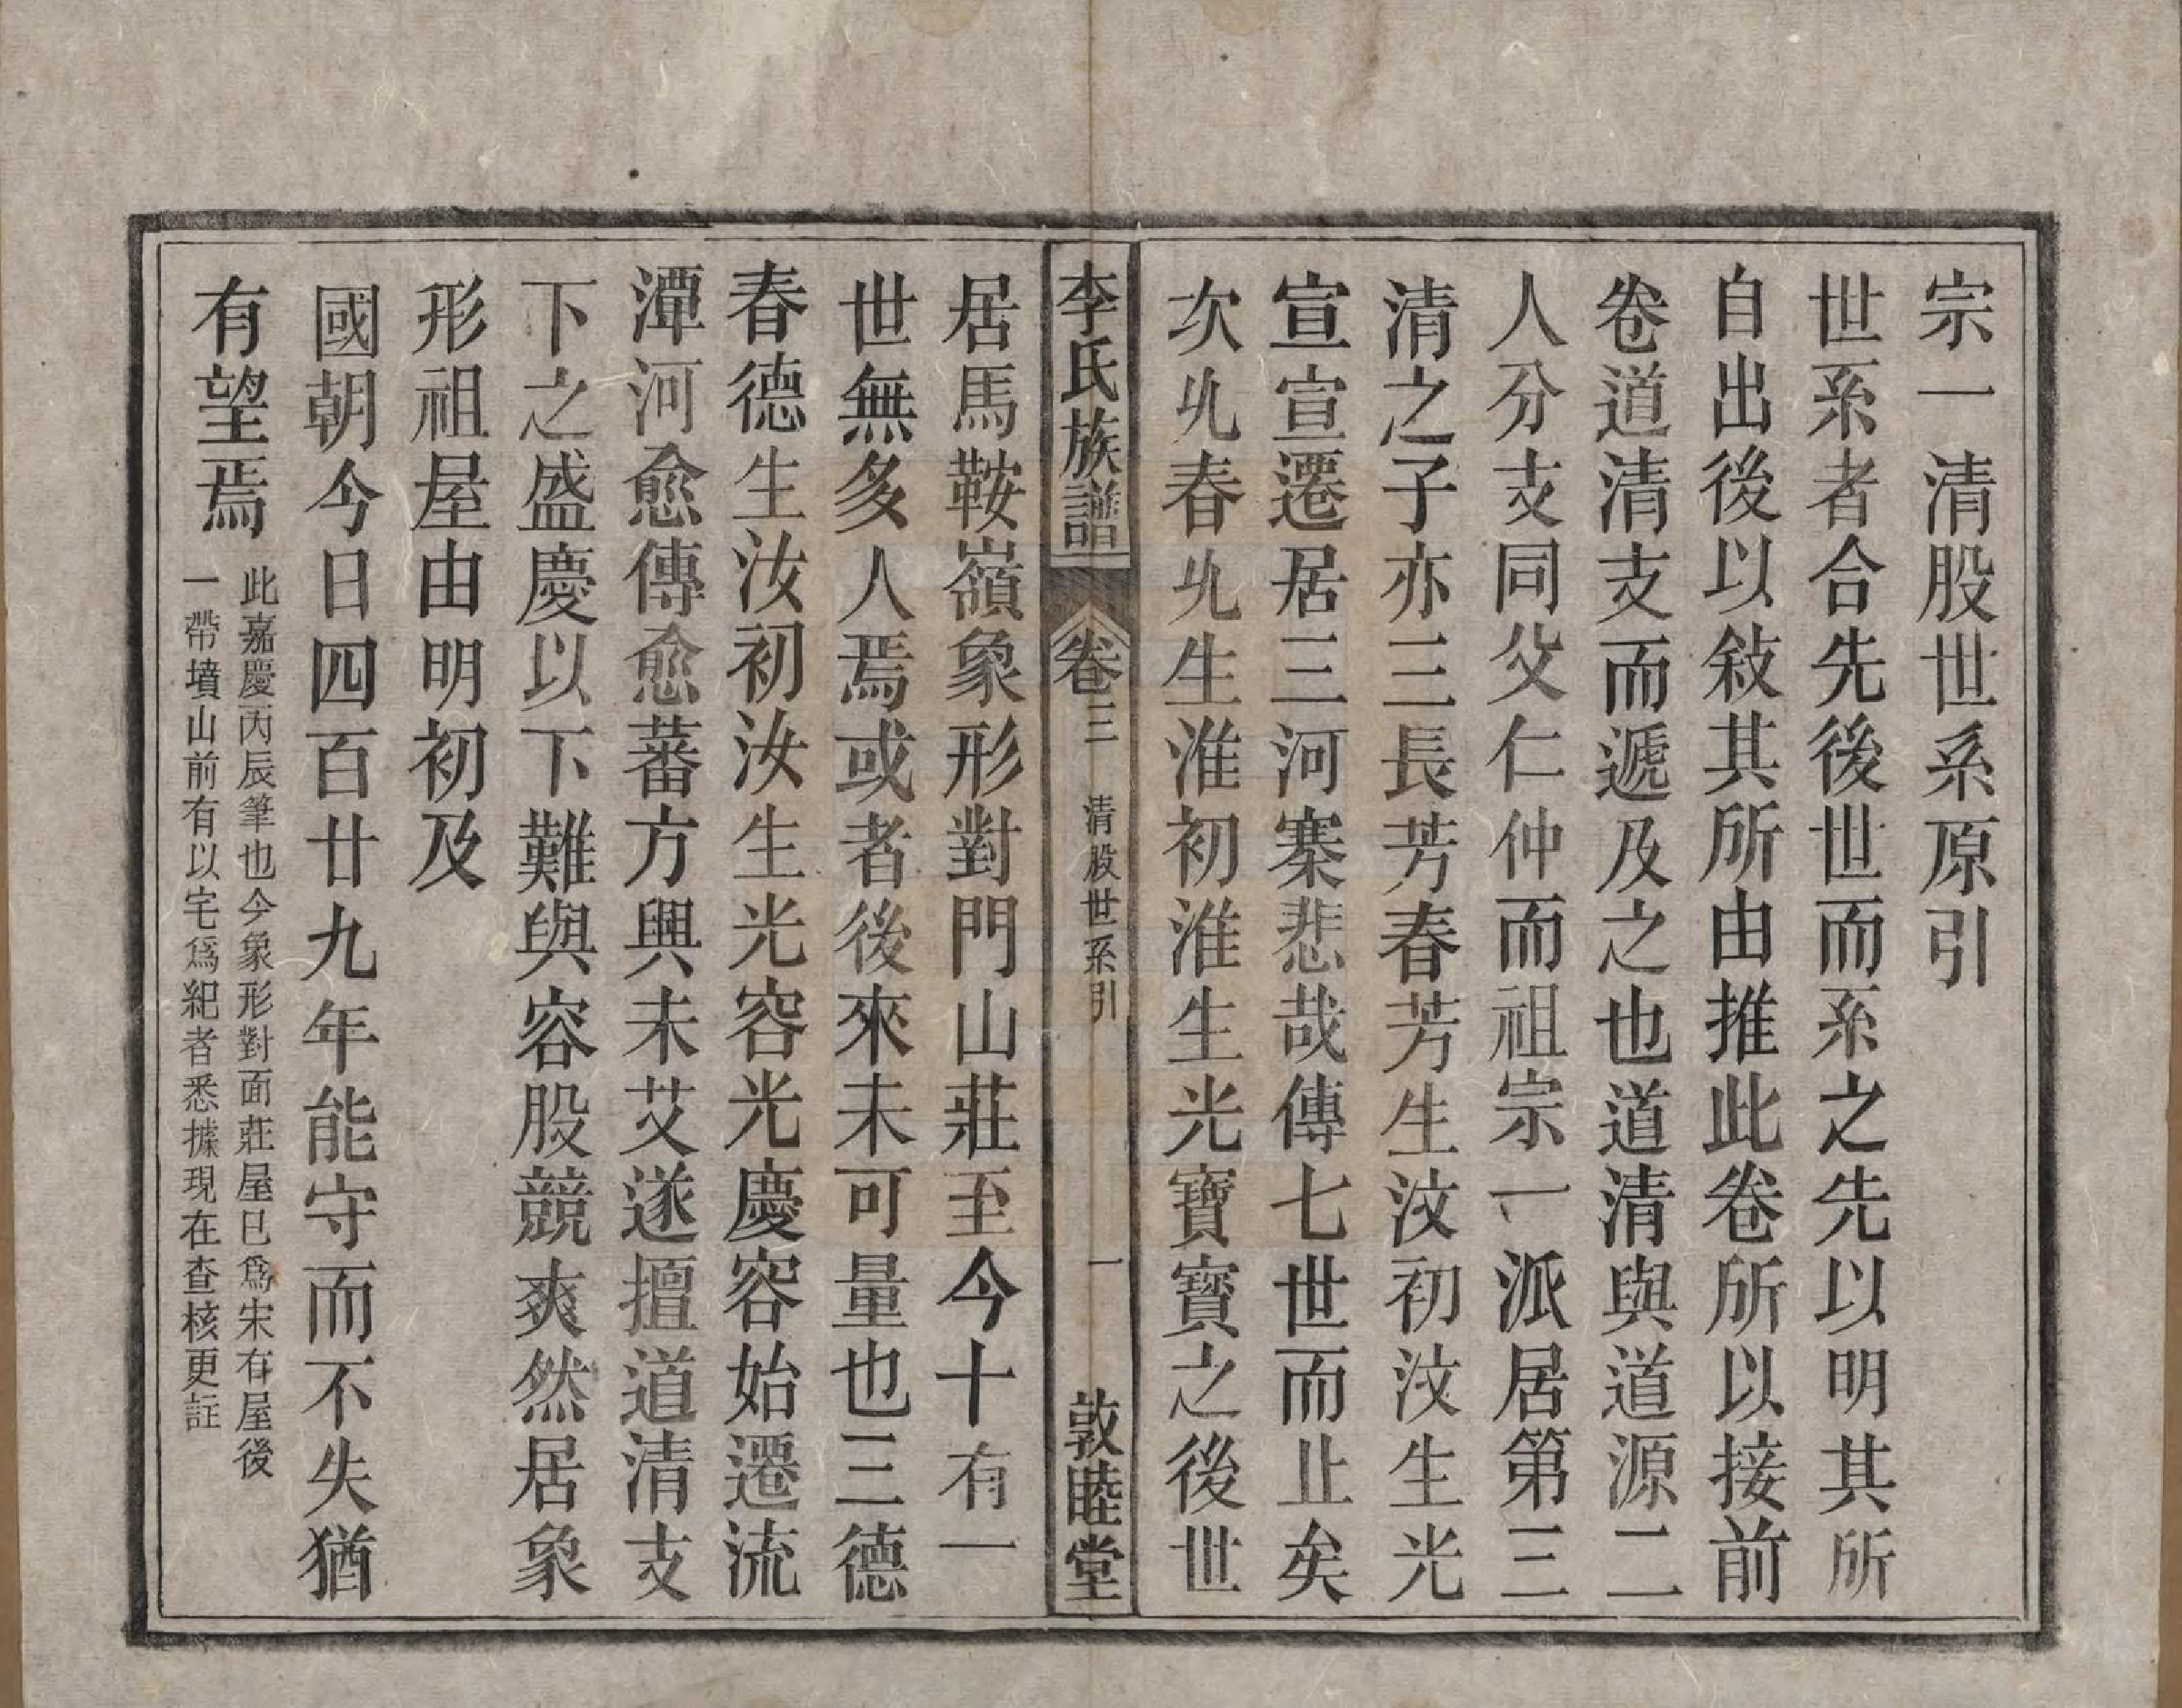 宗一清股世系原引
世系者合先後世而系之先以明其所
自出後以敍其所由推此卷所以接前
卷道清支而遞及之也道清與道源二
人分支同父仁仲而祖宗一派居第三
清之子亦三長芳春芳生汶初汶生光
宣宣遷居三河寨悲哉傳七世而止矣
次㐆春㐆生淮初淮生光寶寶之後世
李氏族譜
卷三
清股世系引
一
敦睦堂
居馬鞍嶺象形對門山莊至今十有一
世無多人焉或者後來未可量也三德
春德生汝初汝生光容光慶容始遷流
潭河愈傳愈蕃方興未艾遂擅道清支
下之盛慶以下難與容股競爽然居象
形祖屋由明初及
國朝今日四百廿九年能守而不失猶
有望焉
此嘉慶丙辰筆也今象形對面莊屋已爲宋存屋後
一帶墳山前有以宅爲紀者悉據現在查核更註